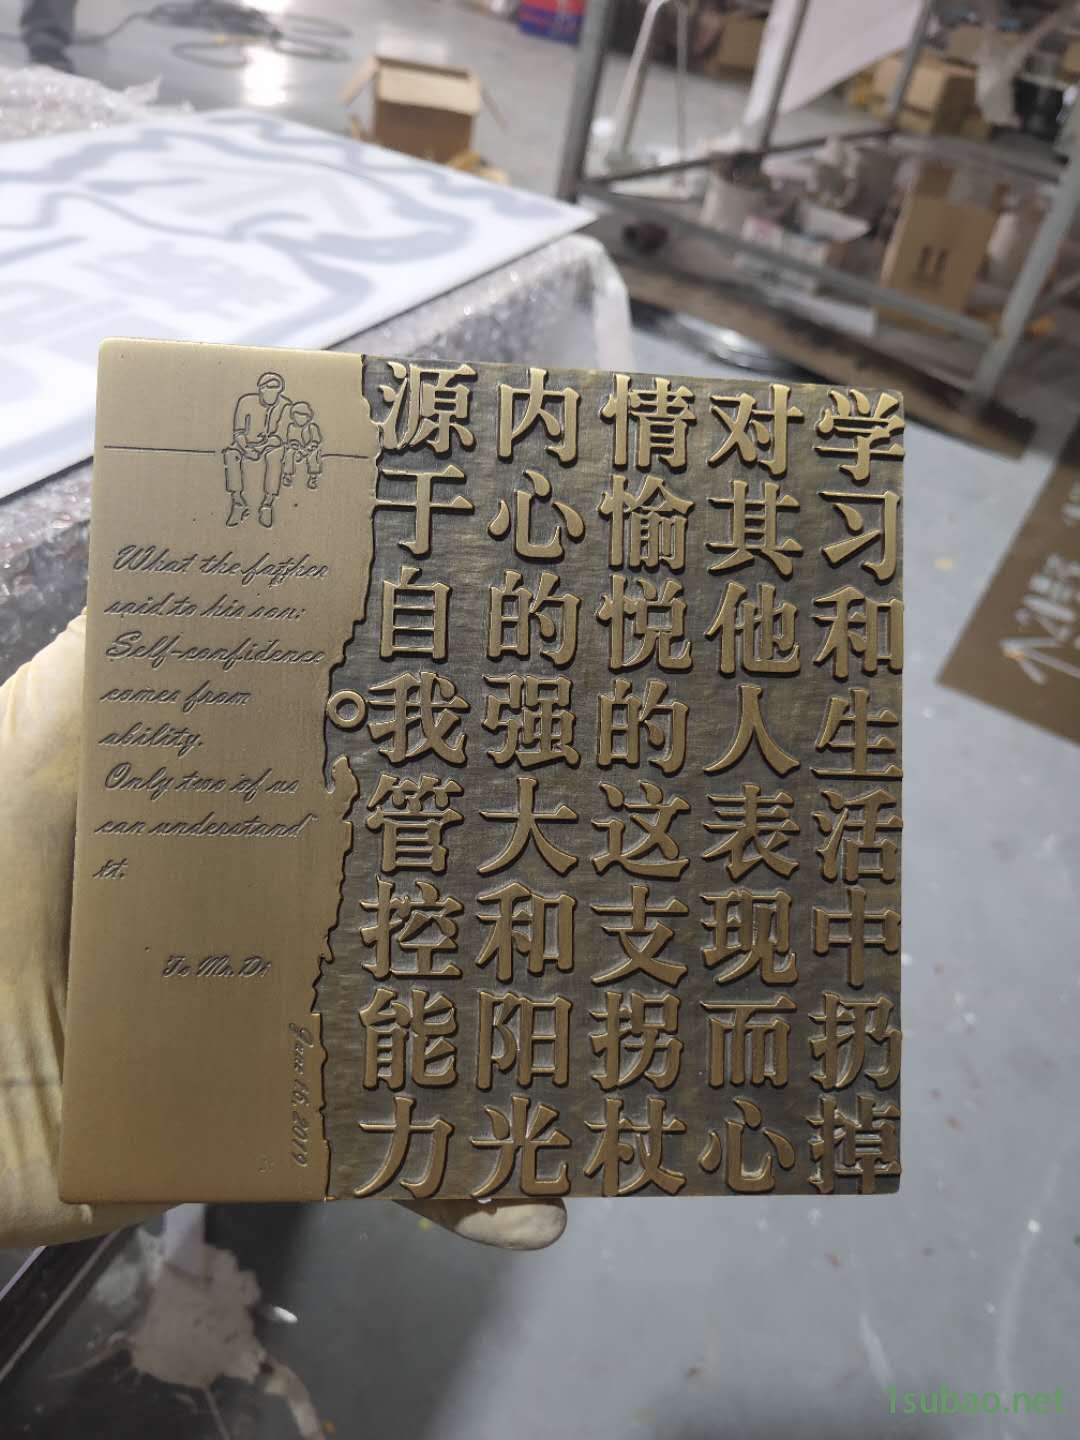 学习和生活中扔掉
对其他人表现而心
情愉悦的这支拐杖
内心的强大和阳光
源于自我管控能力
。
What the father
said to his son:
Self-confidence
comes from
ability.
Only two of us
can understand
it.
To Mr. Di
June 16, 2019
1subao.net